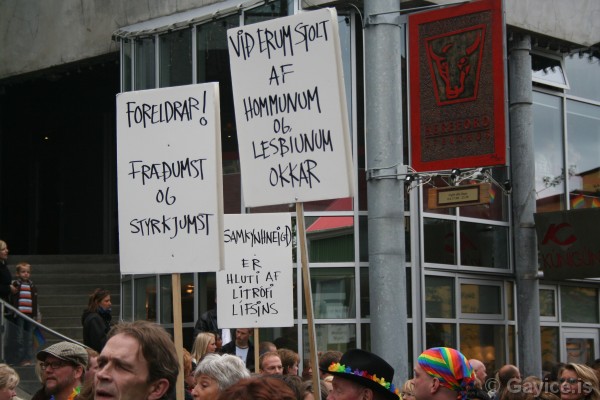 FORELDRAR!
FRÆÐUMST
OG
STYRKJUMST
VIÐ ERUM STOLT
AF
HOMMUNUM
OG
LESBIUNUM
OKKAR
SAMKYNHNEIGÐ
ER
HLUTI AF
LITRÓFI
LÍFSINS
Gayice.is